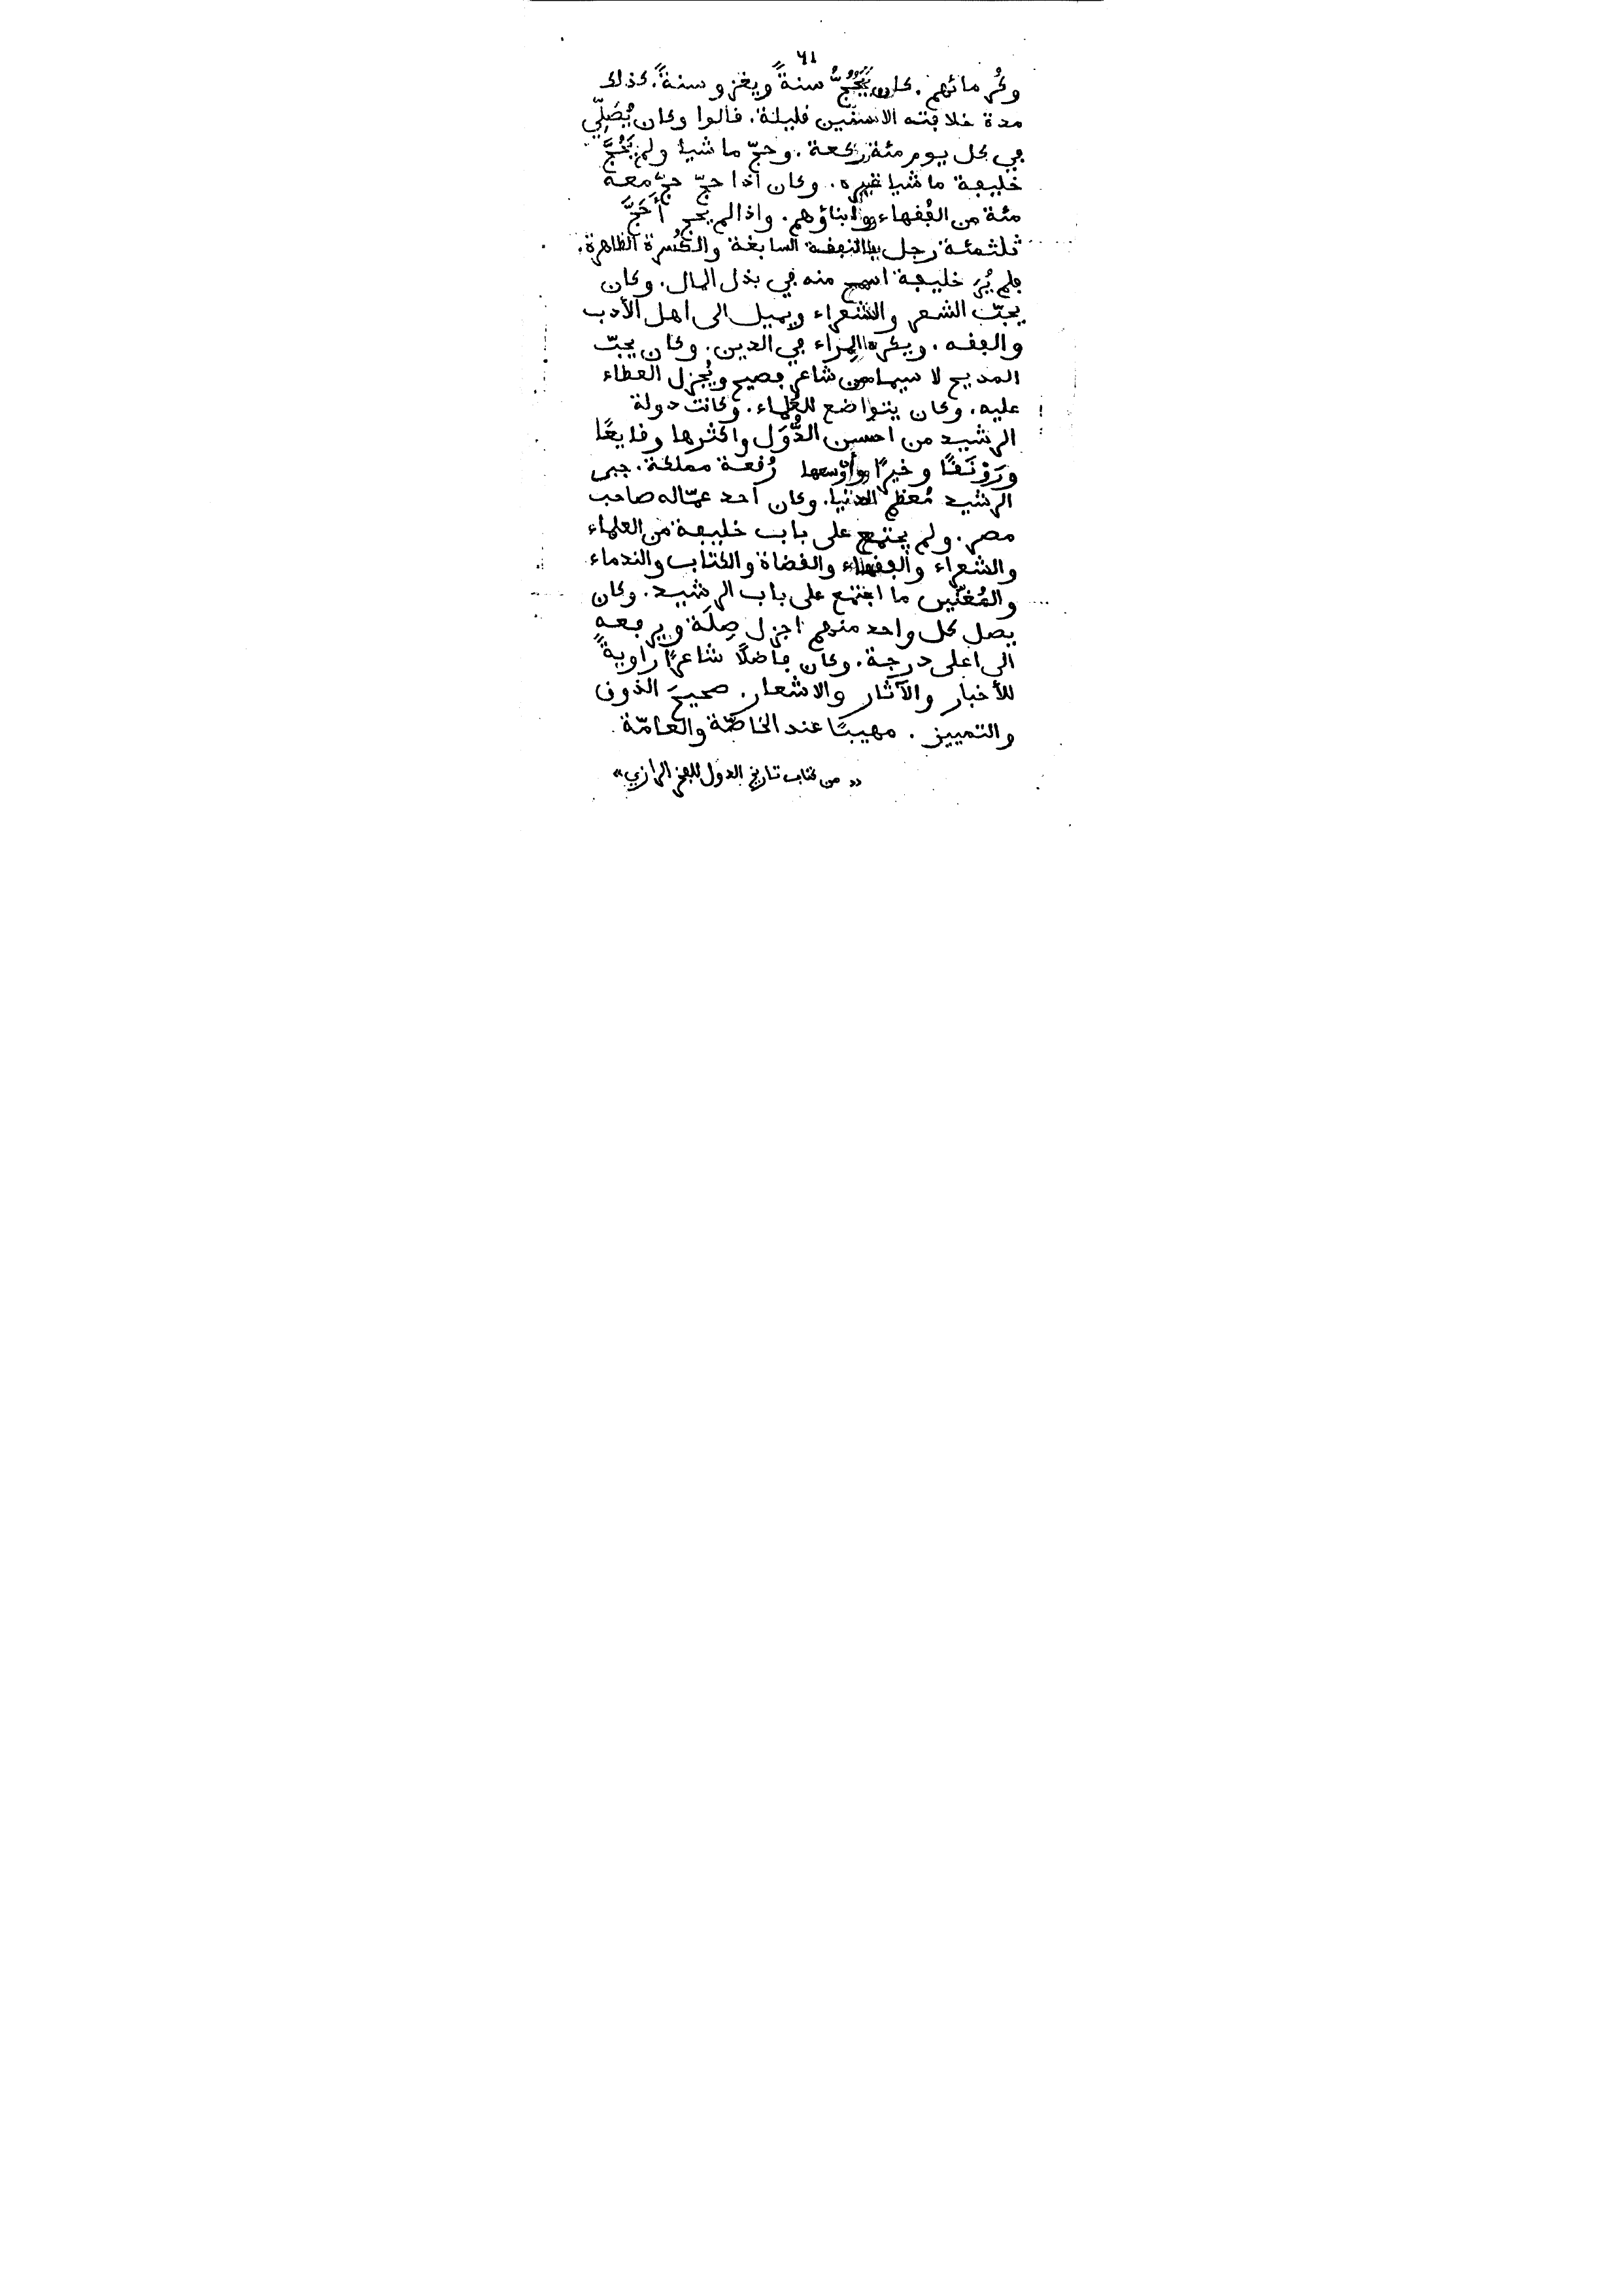 ٦١
وكُرمائهم. كان يَحُجُّ سنةً ويغزو سنةً. كذلك
مدة خلافته الا سنين قليلة. قالوا وكان يُصَلِّي
في كل يوم مئة ركعة. وحجّ ماشيا ولم يَحُجَّ
خليفة ماشيا غيره. وكان اذا حجّ حجّ معه
مئة من الفُقهاء وأبناؤهم. واذا لم يحج أَحَجَّ
ثلثمئة رجل بالنفقة السابغة والكُسرة الظاهرة.
فلم يُرَ خليفة اسمح منه في بذل المال. وكان
يحبّ الشعر والشعراء ويميل الى اهل الأدب
والفقه. ويكره المِراء في الدين. وكان يحبّ
المديح لا سيما من شاعر فصيح ويُجزل العطاء
عليه. وكان يتواضع للعُلماء. وكانت دولة
الرشيد من احسن الدُّوَل واكثرها وقايعًا
ورَوْنَقًا وخيرًا وأوسعها رُقعة مملكة. جبى
الرشيد مُعظم الدنيا. وكان احد عمّاله صاحب
مصر. ولم يجتمع على باب خليفة من العلماء
والشعراء والفقهاء والقضاة والكتاب والندماء
والمُغنّين ما اجتمع على باب الرشيد. وكان
يصل كل واحد منهم اجزل صِلَة ويرفعه
الى اعلى درجة. وكان فاضلًا شاعرًا راويةً
للأخبار والآثار والاشعار. صحيحَ الذوق
والتمييز. مهيبًا عند الخاصّة والعامّة.
«من كتاب تاريخ الدول للفخر الرازي»